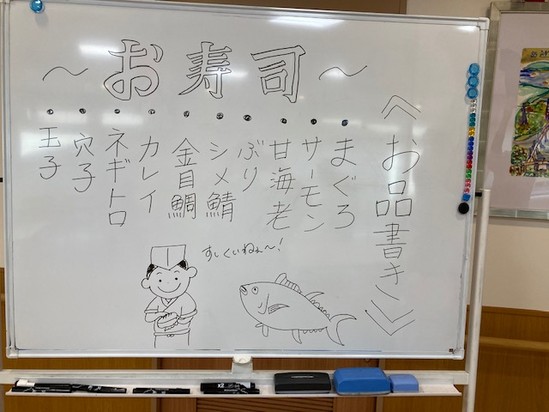 ～お寿司～
〈お品書き〉
まぐろ
サーモン
甘海老
ぶり
シメ鯖
金目鯛
カレイ
ネギトロ
穴子
玉子
すしくいねぇ～!